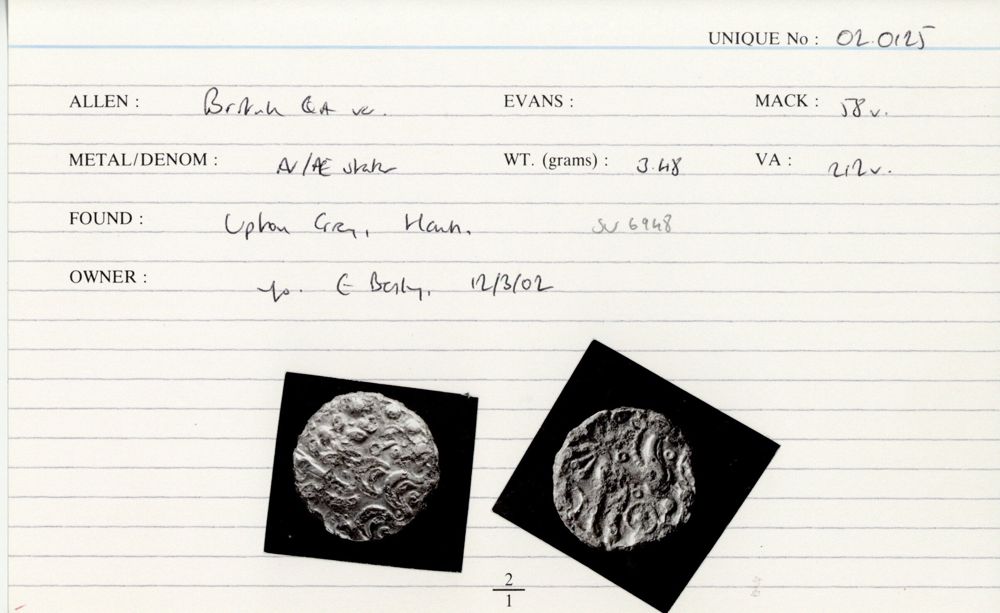 UNIQUE No : 02.0125
ALLEN : British QA var. EVANS : MACK : 58 v.
METAL/DENOM : AV/AE stater WT. (grams) : 3.48 VA : 212 v.
FOUND : Upton Grey, Hants. SU 6948
OWNER : E 12/3/02
2
1